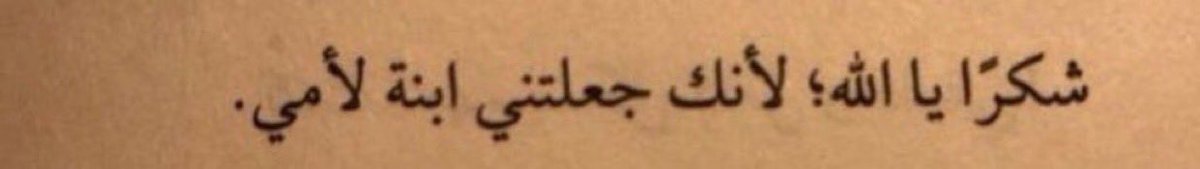 شكرًا يا الله؛ لأنك جعلتني ابنة لأمي.